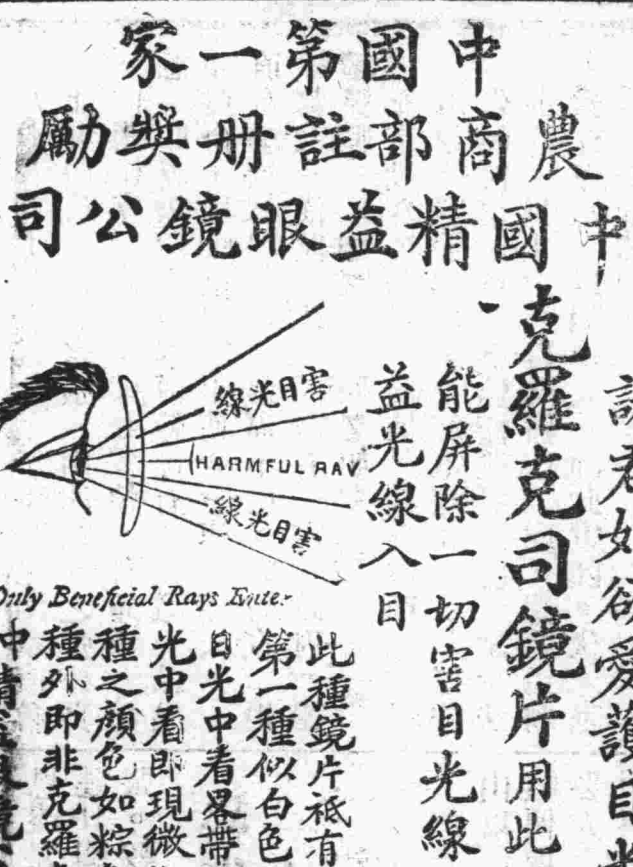 中國第一家
農商部註册奬勵
中國精益眼鏡公司
克羅克司鏡片用此
能屏除一切害目光線
益光線入目
害目光線
HARMFUL RAY
害目光線
Only Beneficial Rays Enter
此種鏡片祗有
第一種似白色
日光中看畧帶
光中看即現微
種之顏色如粽
種外即非克羅